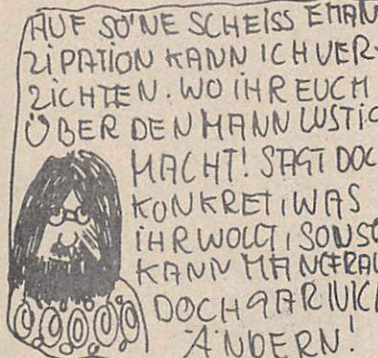 AUF SO'NE SCHEISS EMAN
ZIPATION KANN ICH VER-
ZICHTEN. WO IHR EUCH
ÜBER DEN MANN LUSTIG
MACHT! SAGT DOC
KONKRET, WAS
IHR WOLLT, SONST
KANN MANFRAU
DOCH GAR NICH
ÄNDERN!